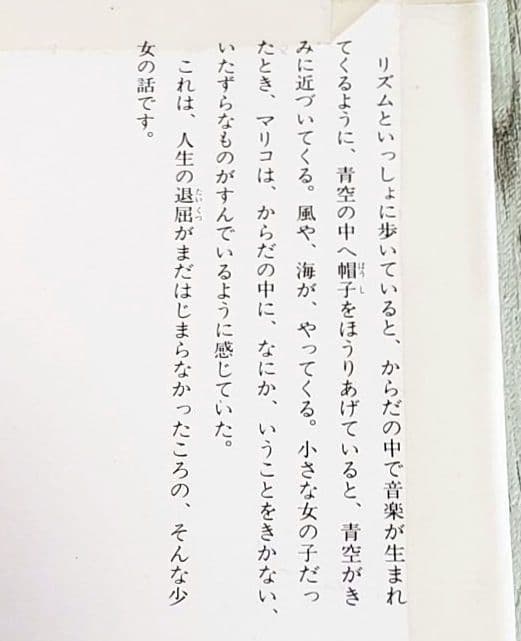 リズムといっしょに歩いていると、からだの中で音楽が生まれ
てくるように、青空の中へ帽子をほうりあげていると、青空がき
みに近づいてくる。風や、海が、やってくる。小さな女の子だっ
たとき、マリコは、からだの中に、なにか、いうことをきかない、
いたずらなものがすんでいるように感じていた。
これは、人生の退屈がまだはじまらなかったころの、そんな少
女の話です。